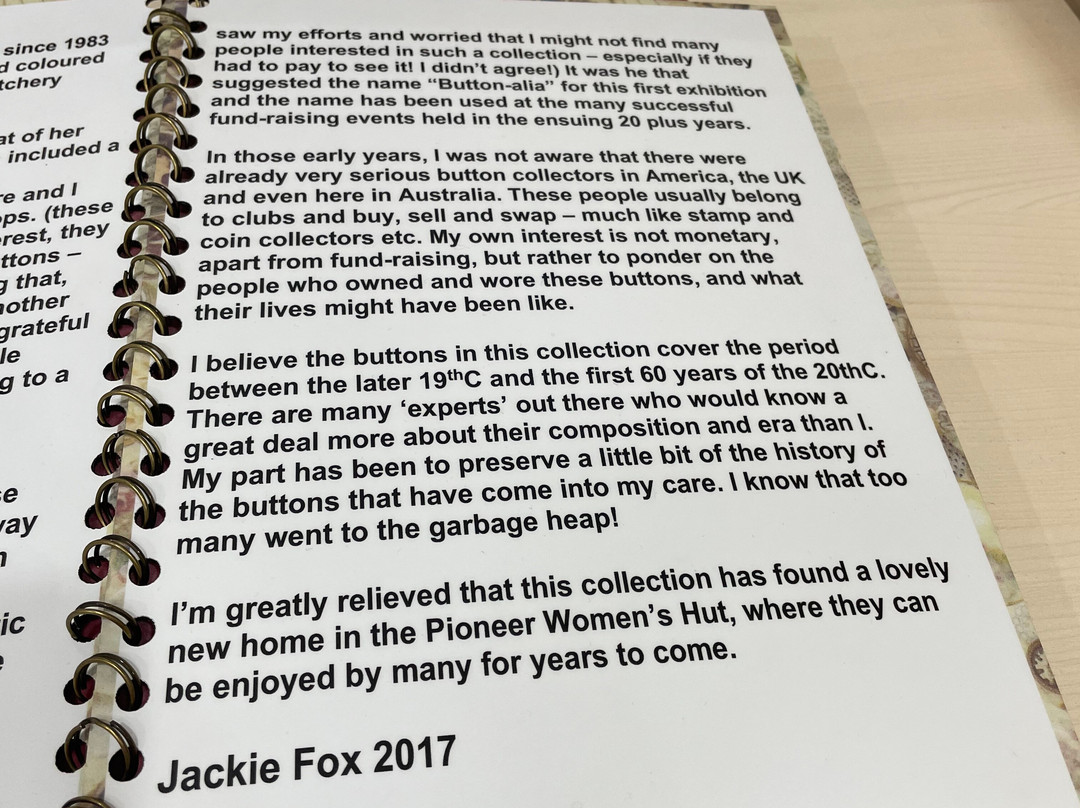 since 1983
d coloured
tchery
at of her
included a
re and I
ops. (these
rest, they
ttons –
g that,
nother
grateful
le
g to a
se
vay
n
ic
e
saw my efforts and worried that I might not find many
people interested in such a collection – especially if they
had to pay to see it! I didn't agree!) It was he that
suggested the name “Button-alia” for this first exhibition
and the name has been used at the many successful
fund-raising events held in the ensuing 20 plus years.
In those early years, I was not aware that there were
already very serious button collectors in America, the UK
and even here in Australia. These people usually belong
to clubs and buy, sell and swap – much like stamp and
coin collectors etc. My own interest is not monetary,
apart from fund-raising, but rather to ponder on the
people who owned and wore these buttons, and what
their lives might have been like.
I believe the buttons in this collection cover the period
between the later 19thC and the first 60 years of the 20thC.
There are many ‘experts’ out there who would know a
great deal more about their composition and era than I.
My part has been to preserve a little bit of the history of
the buttons that have come into my care. I know that too
many went to the garbage heap!
I’m greatly relieved that this collection has found a lovely
new home in the Pioneer Women’s Hut, where they can
be enjoyed by many for years to come.
Jackie Fox 2017